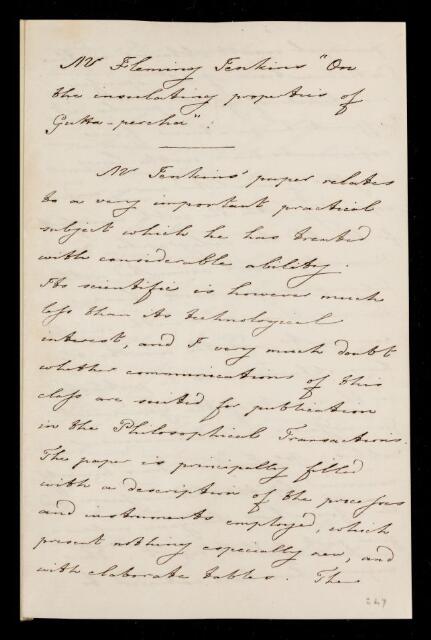 Mr Fleming Jenkins "On
the insulating properties of
Gutta-percha".
Mr Jenkins' paper relates
to a very important practical
subject which he has treated
with considerable ability.
Its scientific is however much
less than its technological
interest, and I very much doubt
whether communications of this
class are suited for publication
in the Philosophical Transactions.
The paper is principally filled
with a description of the processes
and instruments employed, which
present nothing especially new, and
with elaborate tables. The
247